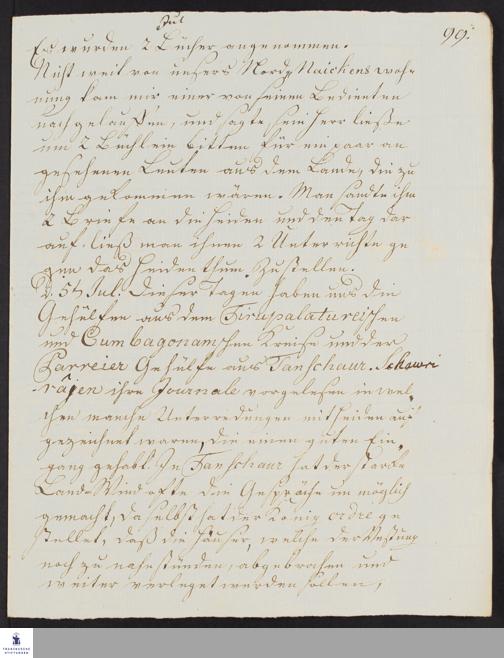 Jul
99.
Es wurden 2 Bücher angenommen.
Nicht weit von unsers Nordy Naickens woh-
nung kam mir einer von seinen Bedienten
nachgelauffen, und sagte, sein Herr ließe
um 2 Büchlein bitten für ein paar an
gesehenen Leuten aus dem Lande, die zu
ihm gekommen wären. Man sandte ihm
2 Briefe an die Heiden und den Tag dar
auf ließ man ihnen 2 Unterrichte ge
gen das Heidenthum zustellen.
d. 5t Jul. dieser Tagen haben uns die
Gehülfen aus dem Tirupalatureischen
und Cumbagonamschen Kreise und der
Parreier Gehülfe aus Tanschaur. Schawri
râjen ihre Journale vorgelesen in wel,
chen manche Unterredungen mit Heiden auf
gezeichnet waren, die einen guten Ein,
gang gehabt. In Tanschaur hat der starke
Land-Wind ofte die Gespräche unmöglich
gemacht, daselbst hat der König ordre ge
stellet, daß die Häuser, welche der Vestung
noch zu nahe stünden, abgebrochen und
weiter verleget werden sollen;
FRANCKESCHE
STIFTUNGEN